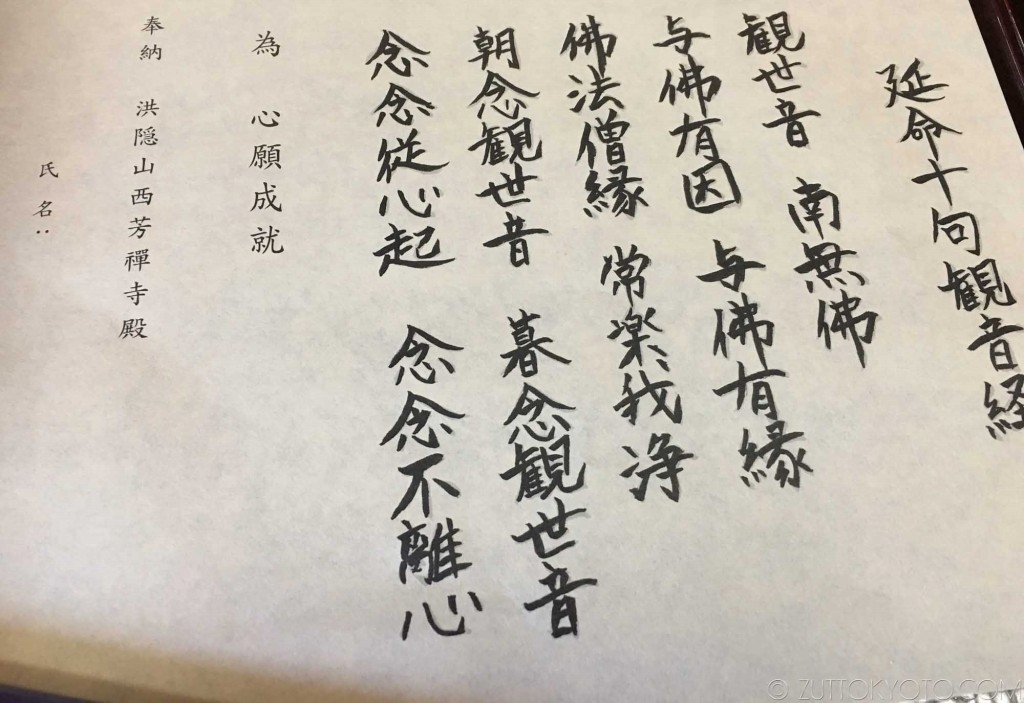 延命十句観音経
観世音 南無佛
与佛有因 与佛有縁
佛法僧縁 常楽我浄
朝念観世音 暮念観世音
念念従心起 念念不離心
為 心願成就
奉納 洪隠山西芳禪寺殿
氏名:
© ZUTTOKYOTO.COM